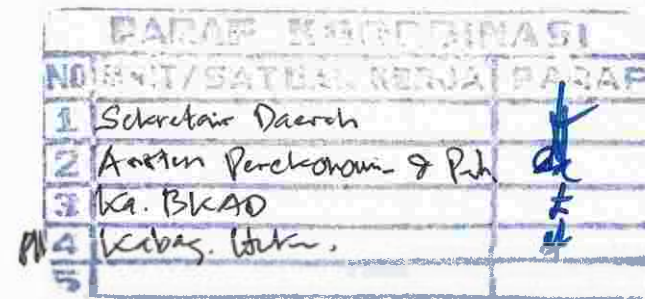 PARAF KOORDINASI
NO UNIT/SATUAN KERJA PARAF
1 Sekretair Daerah
2 Asisten Perekonomi &
3 Ka. BKAD
4 Kabag.
5